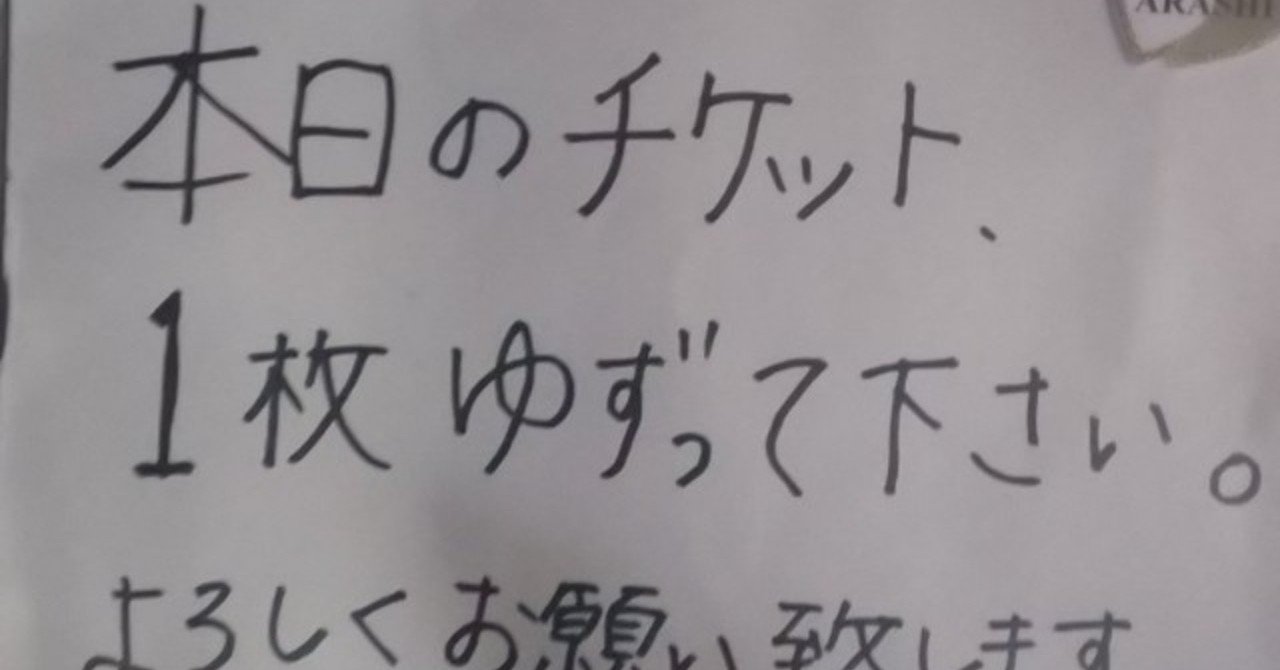 ARASHI
本日のチケット、
1枚ゆずって下さい。
よろしくお願い致します